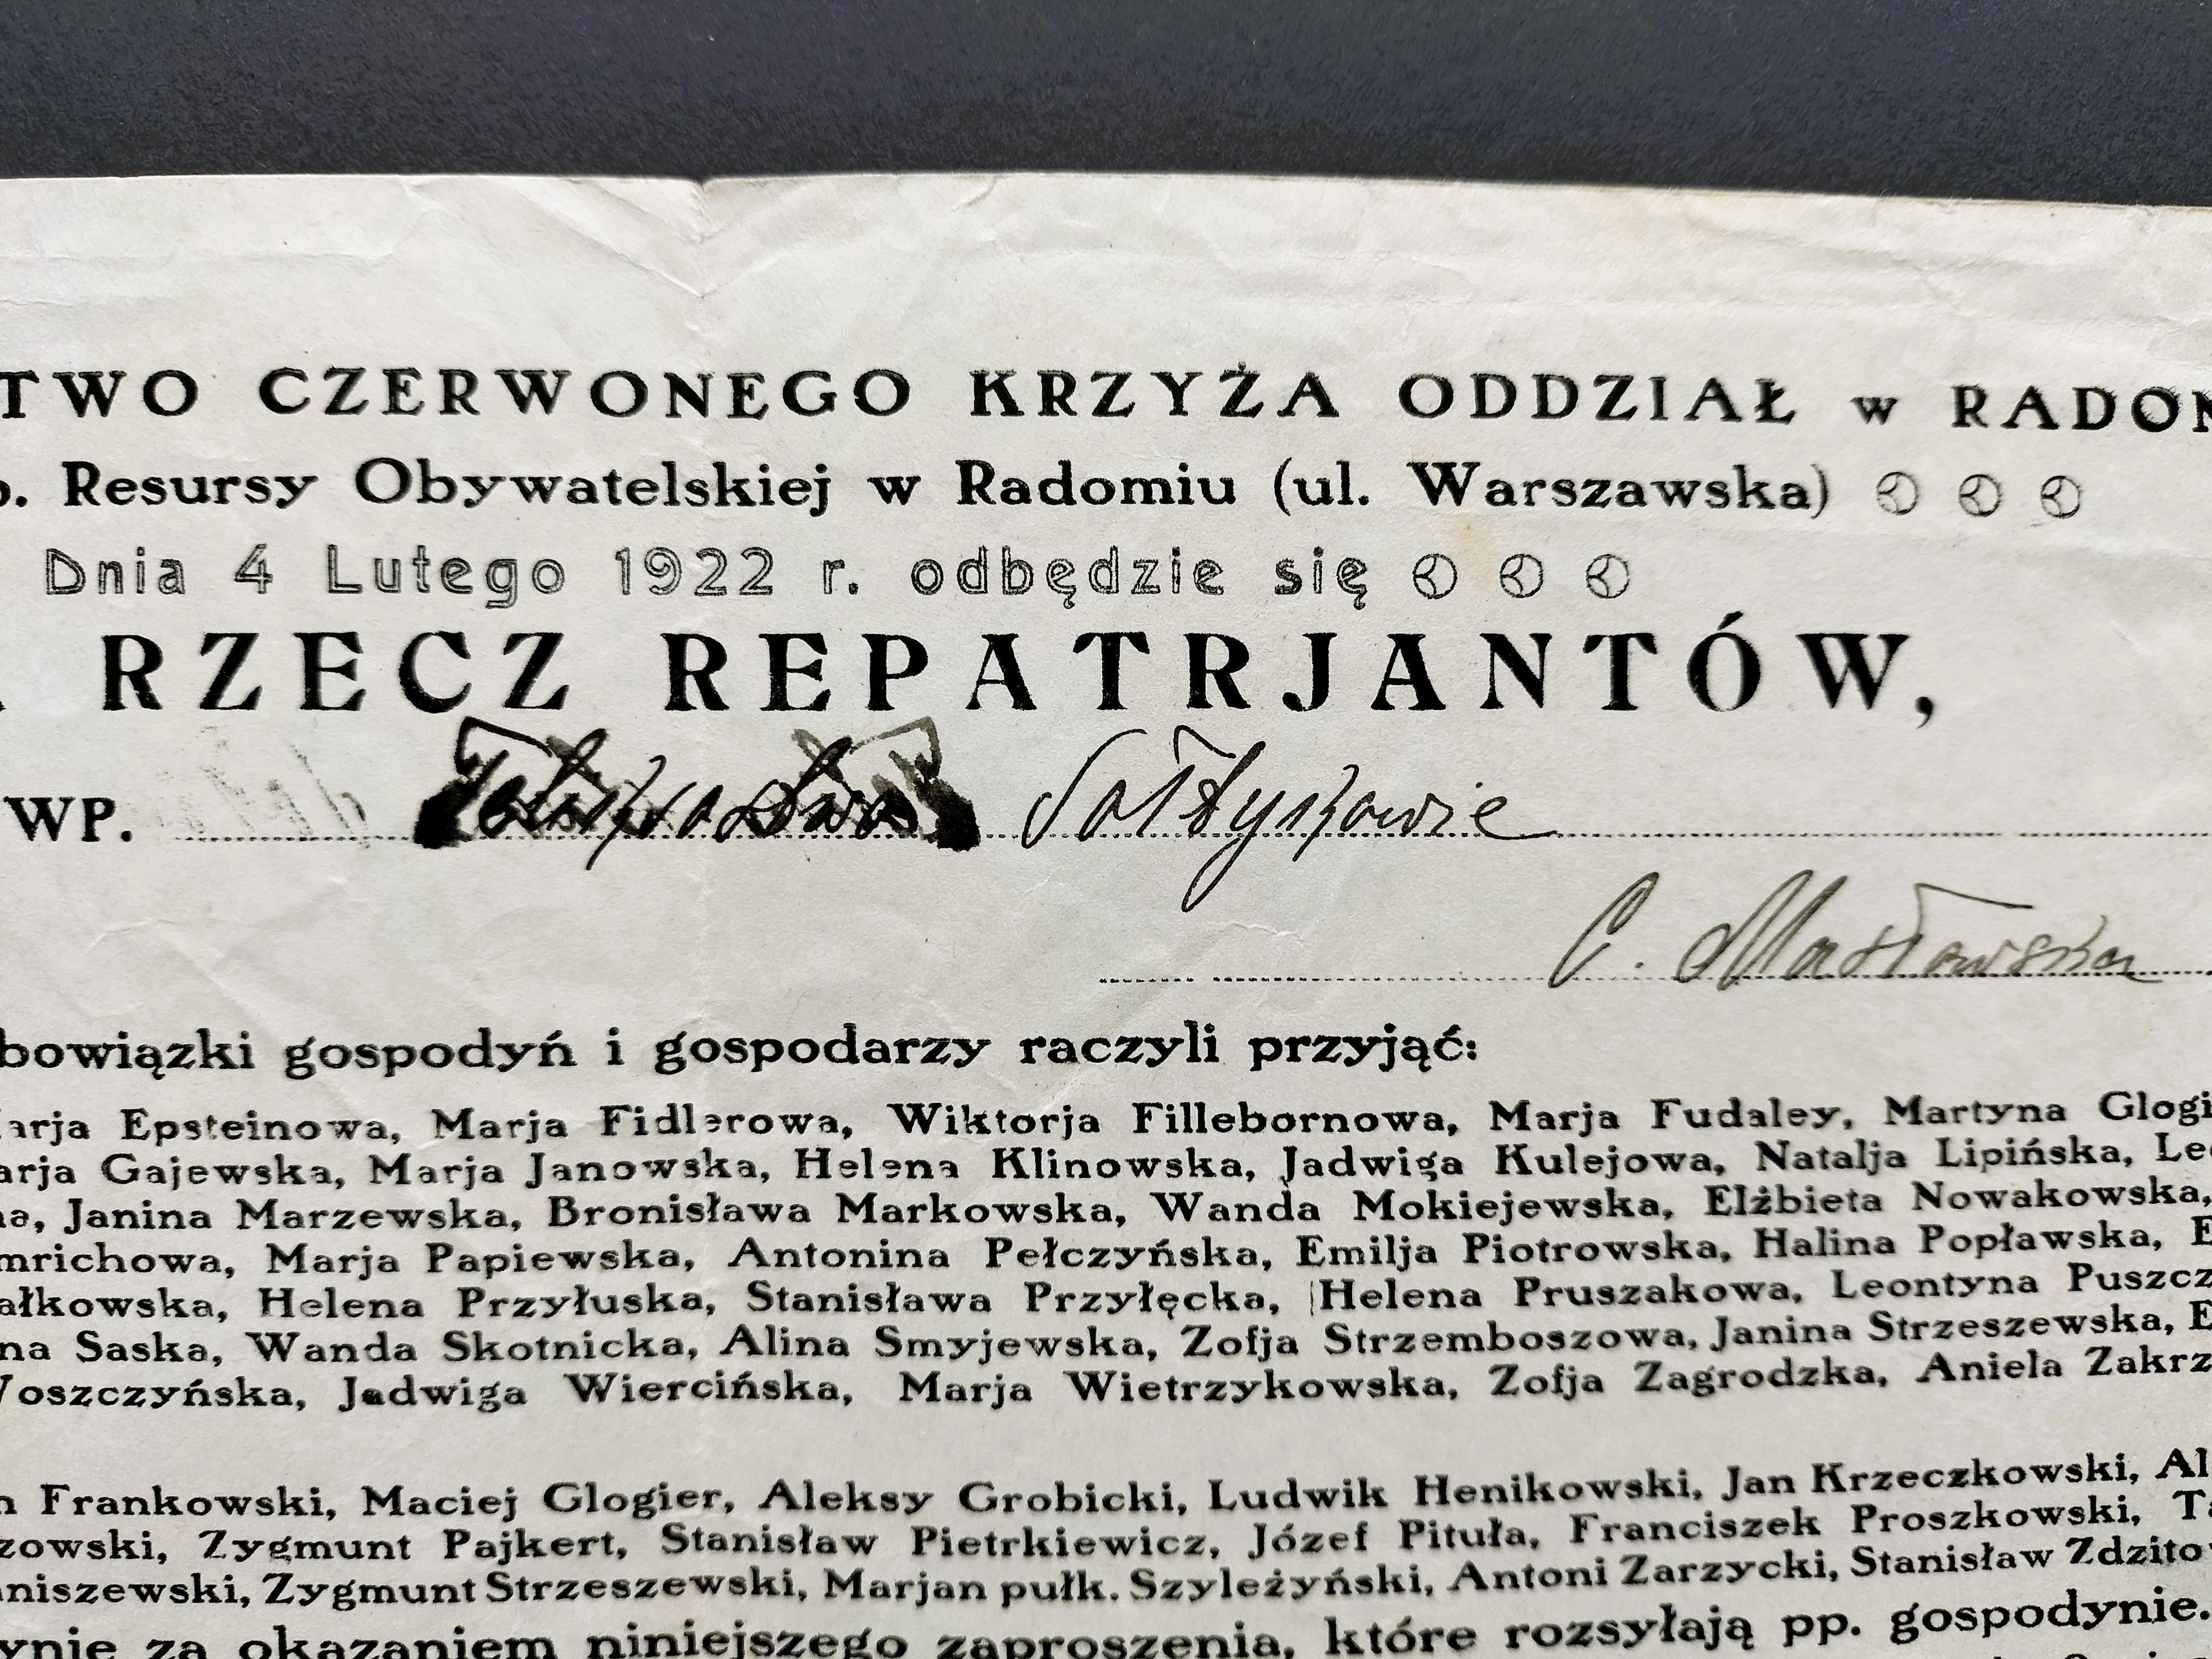 TWO CZERWONEGO KRZYŻA ODDZIAŁ w RADOM
p. Resursy Obywatelskiej w Radomiu (ul. Warszawska)
Dnia 4 Lutego 1922 r. odbędzie się
RZECZ REPATRJANTÓW,
WP. Sołtykowie
C. Masłowska
bowiązki gospodyń i gospodarzy raczyli przyjąć:
arja Epsteinowa, Marja Fidlerowa, Wiktorja Fillebornowa, Marja Fudaley, Martyna Glogi
arja Gajewska, Marja Janowska, Helena Klinowska, Jadwiga Kulejowa, Natalja Lipińska, Le
na, Janina Marzewska, Bronisława Markowska, Wanda Mokiejewska, Elżbieta Nowakowska,
mrichowa, Marja Papiewska, Antonina Pełczyńska, Emilja Piotrowska, Halina Popławska, E
ałkowska, Helena Przyłuska, Stanisława Przyłęcka, Helena Pruszakowa, Leontyna Puszcz
na Saska, Wanda Skotnicka, Alina Smyjewska, Zofja Strzemboszowa, Janina Strzeszewska, E
Woszczyńska, Jadwiga Wiercińska, Marja Wietrzykowska, Zofja Zagrodzka, Aniela Zakrz
n Frankowski, Maciej Glogier, Aleksy Grobicki, Ludwik Henikowski, Jan Krzeczkowski, Al
zowski, Zygmunt Pajkert, Stanisław Pietrkiewicz, Józef Pituła, Franciszek Proszkowski, Ta
niszewski, Zygmunt Strzeszewski, Marjan pułk. Szyleżyński, Antoni Zarzycki, Stanisław Zdzito
ynie za okazaniem niniejszego zaproszenia, które rozsyłają pp. gospodynie.